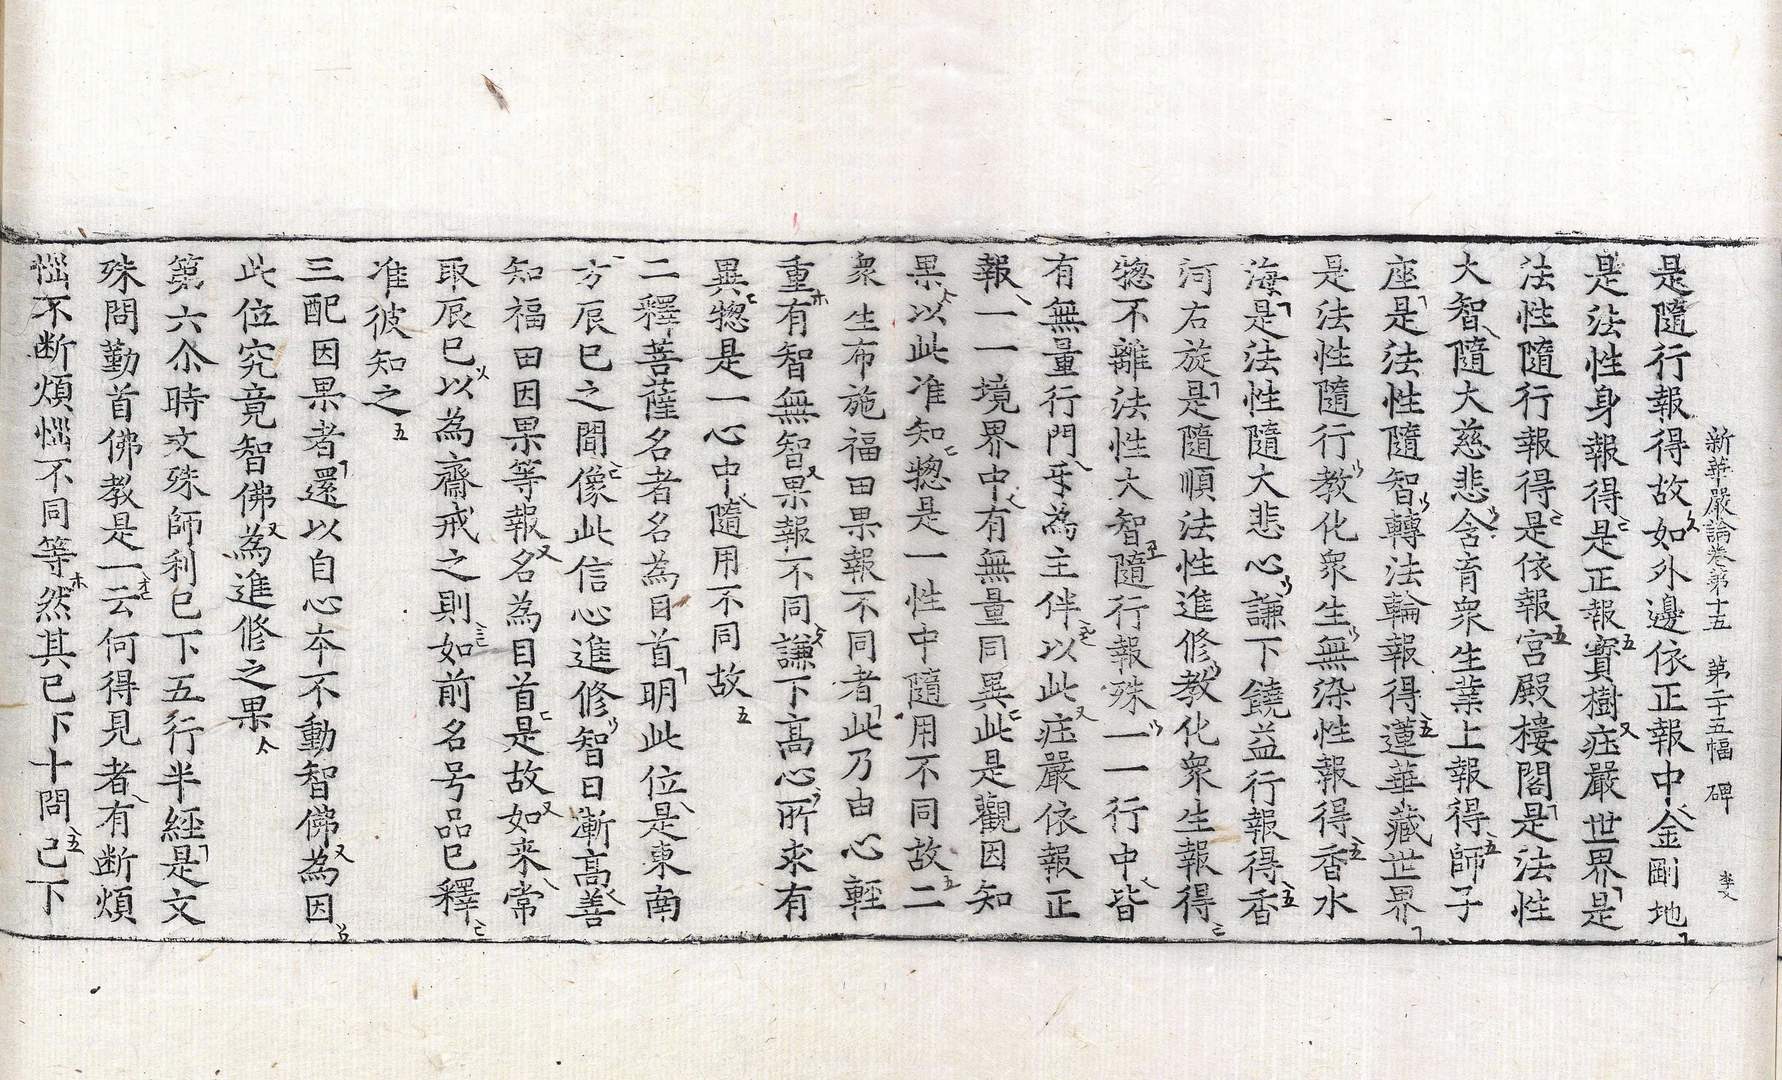 新華嚴論卷第十五　第二十五幅　碑　李文
是隨行報得故如外邊依正報中金剛地
是法性身報得是正報寶樹症嚴世界是
法性隨行報得是依報宮殿樓閣是法性
大智隨大慈悲含育衆生業上報得師子
座是法性隨智轉法輪報得蓮華藏世界
是法性隨行教化衆生無染性報得香水
海是法性隨大悲心謙下饒益行報得香
河右旋是隨順法性進修教化衆生報得
揔不離法性大智隨行報殊一一行中皆
有無量行門㸦為主伴以此症嚴依報正
報一一境界中有無量同異此是觀因知
果以此准知揔是一性中隨用不同故二
衆生布施福田果報不同者此乃由心輕
重有智無智果報不同謙下高心所求有
異揔是一心中隨用不同故
二釋菩薩名者名為目首明此位是東南
方辰巳之間像此信心進修智日漸高善
知福田因果等報名為目首是故如来常
取辰巳以為齋戒之則如前名号品已釋
准彼知之
三配因果者還以自心夲不動智佛為因
此位究竟智佛為進修之果
第六尒時文殊師利已下五行半經是文
殊問勤首佛教是一云何得見者有断煩
惱不断煩惱不同等然其已下十問已下